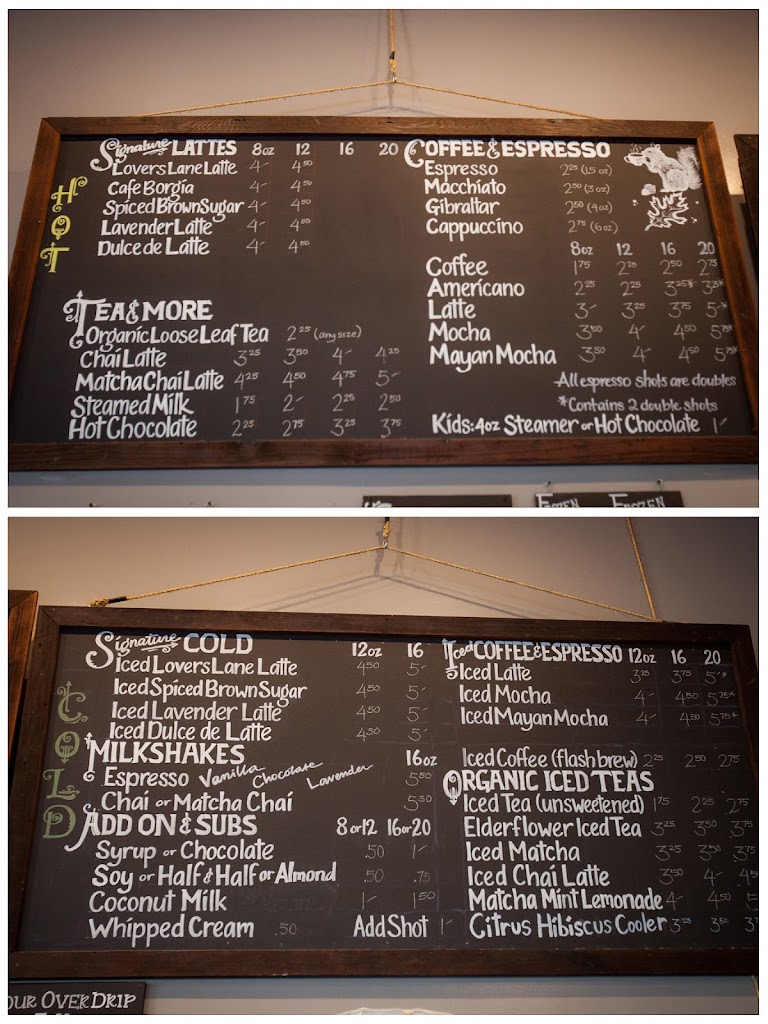 HOT
Signature LATTES 8oz 12 16 20
Lovers Lane Latte 4- 4.50
Cafe Borgia 4- 4.50
Spiced Brown Sugar 4- 4.50
Lavender Latte 4- 4.50
Dulce de Latte 4- 4.50
TEA & MORE
Organic Loose Leaf Tea 2.25 (any size)
Chai Latte 3.25 3.50 4- 4.25
Matcha Chai Latte 4.25 4.50 4.75 5-
Steamed Milk 1.75 2- 2.25 2.50
Hot Chocolate 2.25 2.75 3.25 3.75
COFFEE & ESPRESSO
Espresso 2.25 (1.5 oz)
Macchiato 2.50 (3 oz)
Gibraltar 2.50 (4 oz)
Cappuccino 2.75 (6 oz)
8oz 12 16 20
Coffee 1.75 2.25 2.50 2.75
Americano 2.25 2.25 3.25* 3.25*
Latte 3- 3.25 3.75 5-*
Mocha 3.50 4- 4.50 5.75*
Mayan Mocha 3.50 4- 4.50 5.75*
-All espresso shots are doubles
*Contains 2 double shots
Kids: 4oz Steamer or Hot Chocolate 1-
FROZEN FROZEN
COLD
Signature COLD 12oz 16
Iced Lovers Lane Latte 4.50 5-
Iced Spiced Brown Sugar 4.50 5-
Iced Lavender Latte 4.50 5-
Iced Dulce de Latte 4.50 5-
MILKSHAKES 16oz
Espresso Vanilla Chocolate Lavender 5.50
Chai or Matcha Chai 5.50
ADD ON & SUBS 8 or 12 16 or 20
Syrup or Chocolate .50 1-
Soy or Half & Half or Almond .50 .75
Coconut Milk 1- 1.50
Whipped Cream .50 Add Shot 1-
Iced COFFEE & ESPRESSO 12oz 16 20
Iced Latte 3.25 3.75 5-*
Iced Mocha 4- 4.50 5.75*
Iced Mayan Mocha 4- 4.50 5.75*
Iced Coffee (flash brew) 2.25 2.50 2.75
ORGANIC ICED TEAS
Iced Tea (unsweetened) 1.75 2.25 2.75
Elderflower Iced Tea 3.25 3.50 3.75
Iced Matcha 3.25 3.50 3.75
Iced Chai Latte 3.50 4- 4
Matcha Mint Lemonade 4- 4.50 5
Citrus Hibiscus Cooler 3.25 3.50 3
OUR OVER DRIP